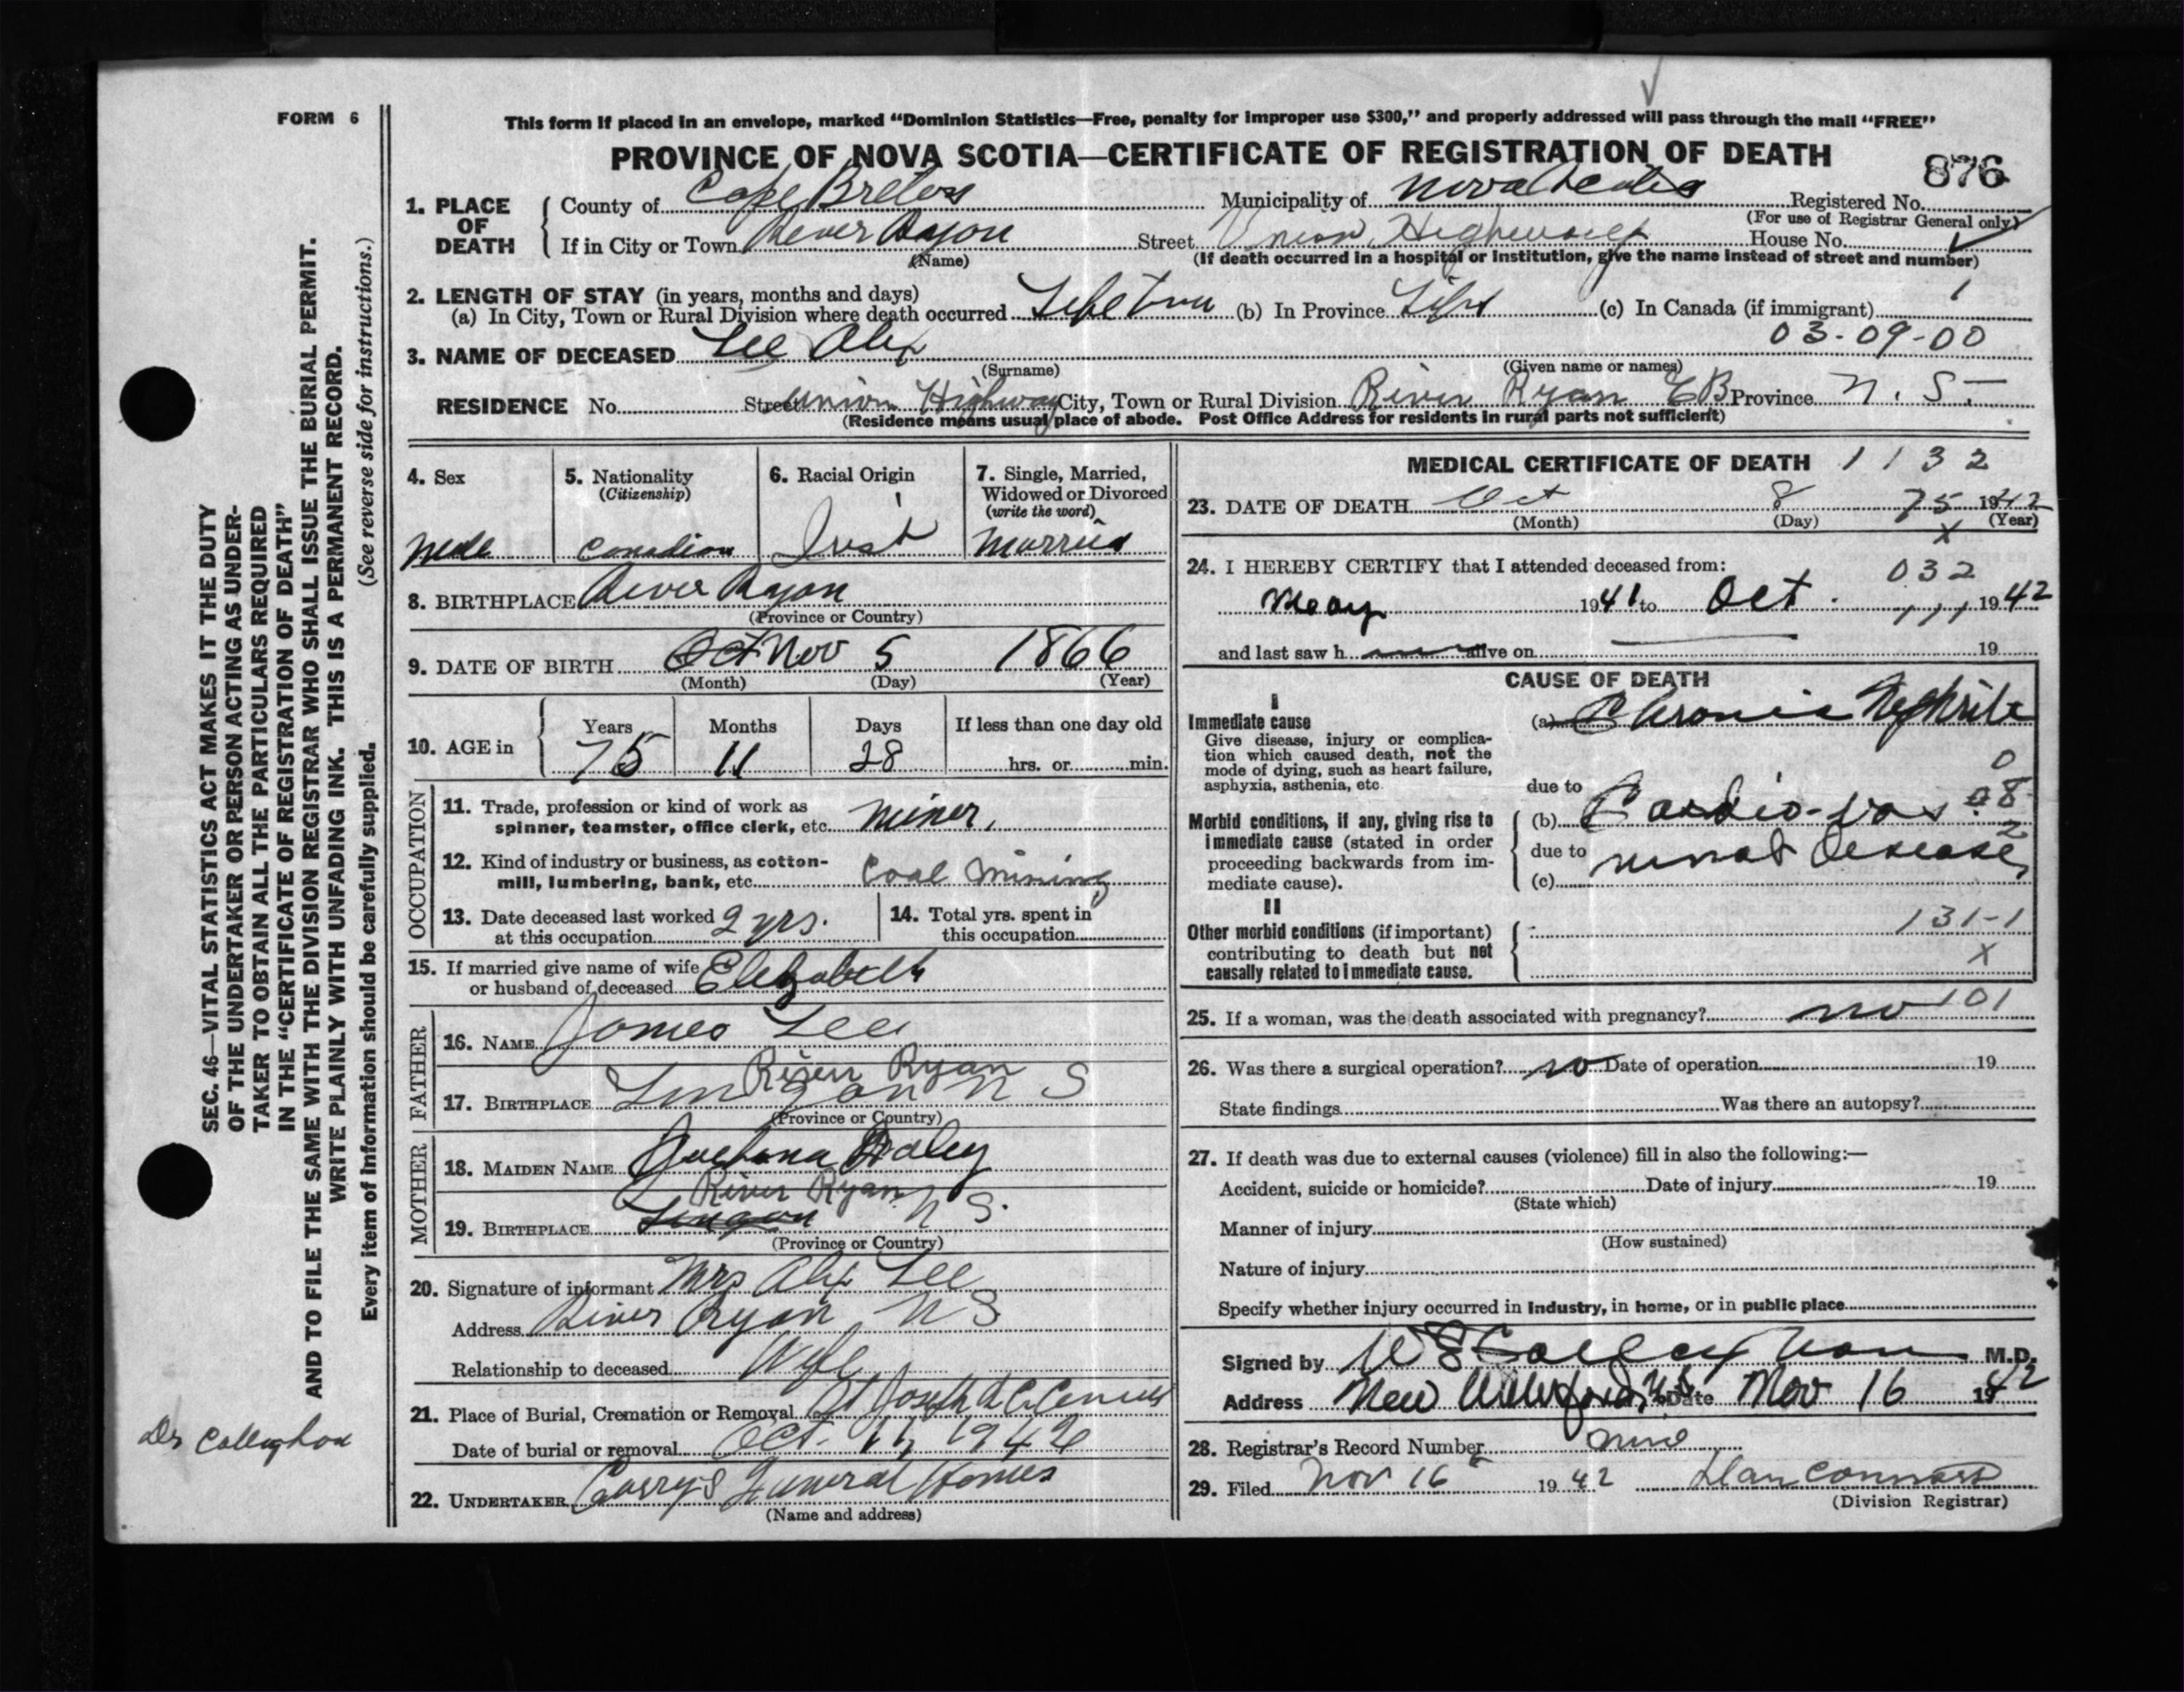 FORM 6
This form if placed in an envelope, marked “Dominion Statistics—Free, penalty for improper use $300,” and properly addressed will pass through the mail “FREE”
PROVINCE OF NOVA SCOTIA—CERTIFICATE OF REGISTRATION OF DEATH
876
1. PLACE OF DEATH
County of Cape Breton Municipality of Nova Scotia Registered No.
(For use of Registrar General only)
If in City or Town River Ryan Street Union Highway House No.
(Name) (If death occurred in a hospital or institution, give the name instead of street and number)
2. LENGTH OF STAY (in years, months and days)
(a) In City, Town or Rural Division where death occurred Life time (b) In Province Life (c) In Canada (if immigrant)
03-09-00
3. NAME OF DECEASED Lee Alex
(Surname) (Given name or names)
RESIDENCE No. Street Union Highway City, Town or Rural Division River Ryan CB Province N.S.
(Residence means usual place of abode. Post Office Address for residents in rural parts not sufficient)
4. Sex
Male
5. Nationality
(Citizenship)
Canadian
6. Racial Origin
Irish
7. Single, Married,
Widowed or Divorced
(write the word)
Married
8. BIRTHPLACE River Ryan
(Province or Country)
9. DATE OF BIRTH Oct Nov 5 1866
(Month) (Day) (Year)
10. AGE in
Years Months Days If less than one day old
75 11 28 hrs. or min.
OCCUPATION
11. Trade, profession or kind of work as
spinner, teamster, office clerk, etc. Miner,
12. Kind of industry or business, as cotton-
mill, lumbering, bank, etc. Coal Mining
13. Date deceased last worked
at this occupation 2 yrs.
14. Total yrs. spent in
this occupation
15. If married give name of wife
or husband of deceased Elizabeth
FATHER
16. NAME James Lee
River Ryan
17. BIRTHPLACE Lingan N S
(Province or Country)
MOTHER
18. MAIDEN NAME Daley
River Ryan
19. BIRTHPLACE Lingan N S.
(Province or Country)
20. Signature of informant Mrs Alex Lee
Address River Ryan N S
Relationship to deceased Wife
21. Place of Burial, Cremation or Removal St Joseph
Date of burial or removal Oct. 11, 1942
22. UNDERTAKER Curry's Funeral Homes
(Name and address)
MEDICAL CERTIFICATE OF DEATH 1132
23. DATE OF DEATH Oct 8 75 1942
(Month) (Day) (Year)
x
24. I HEREBY CERTIFY that I attended deceased from:
032
May 1941 to Oct. 1942
111
and last saw h alive on 19
CAUSE OF DEATH
I
Immediate cause
Give disease, injury or complica-
tion which caused death, not the
mode of dying, such as heart failure,
asphyxia, asthenia, etc.
(a) Chronic Nephritis
due to
Morbid conditions, if any, giving rise to
immediate cause (stated in order
proceeding backwards from im-
mediate cause).
(b) Cardio-vas.
due to renal Disease
(c)
0
8
2
II
Other morbid conditions (if important)
contributing to death but not
causally related to immediate cause.
131-1
X
25. If a woman, was the death associated with pregnancy? no 101
26. Was there a surgical operation? no Date of operation 19
State findings Was there an autopsy?
27. If death was due to external causes (violence) fill in also the following:—
Accident, suicide or homicide? Date of injury 19
(State which)
Manner of injury
(How sustained)
Nature of injury
Specify whether injury occurred in industry, in home, or in public place
Signed by Callaghan M.D.
Address New Waterford, N.S. Date Nov 16 1942
28. Registrar's Record Number
29. Filed Nov 16 1942 Dan
(Division Registrar)
SEC. 46—VITAL STATISTICS ACT MAKES IT THE DUTY
OF THE UNDERTAKER OR PERSON ACTING AS UNDER-
TAKER TO OBTAIN ALL THE PARTICULARS REQUIRED
IN THE “CERTIFICATE OF REGISTRATION OF DEATH”
AND TO FILE THE SAME WITH THE DIVISION REGISTRAR WHO SHALL ISSUE THE BURIAL PERMIT.
WRITE PLAINLY WITH UNFADING INK. THIS IS A PERMANENT RECORD.
Every item of information should be carefully supplied. (See reverse side for instructions.)
Dr Callaghan